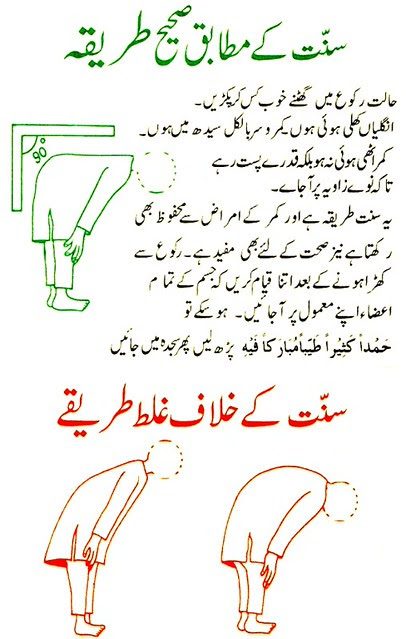 سنّت کے مطابق صحیح طریقہ
حالت رکوع میں گھٹنے خوب کس کر پکڑیں۔
انگلیاں کھلی ہوئی ہوں۔ کمر و سر بالکل سیدھ میں ہوں۔
کمر اٹھی ہوئی نہ ہو بلکہ قدرے پست رہے
تا کہ نوے زاویہ پر آ جائے۔
90°
یہ سنت طریقہ ہے اور کمر کے امراض سے محفوظ بھی
رکھتا ہے نیز صحت کے لئے بھی مفید ہے۔ رکوع سے
کھڑا ہونے کے بعد اتنا قیام کریں کہ جسم کے تمام
اعضاء اپنے معمول پر آ جائیں۔ ہو سکے تو
حَمْداً کَثِیْراً طَیِّباً مُبَارَکاً فَیْهِ پڑھ لیں پھر سجدہ میں جائیں
سنّت کے خلاف غلط طریقے